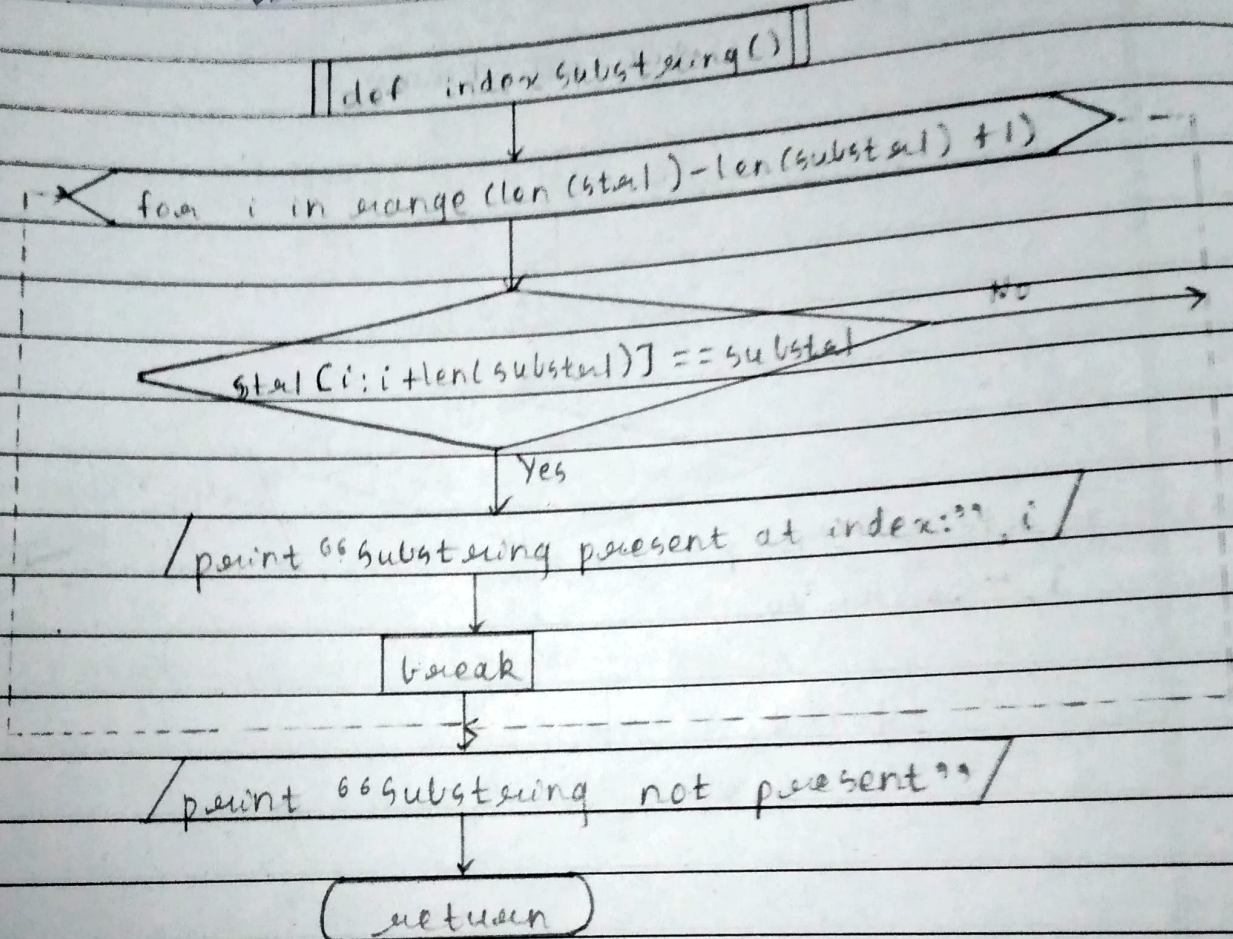 def indexsubstring()
for i in range (len (str1) - len (substr1) + 1)
No
str1 [i: i + len( substr1)] == substr1
Yes
print “substring present at index:”, i
break
print “Substring not present”
return